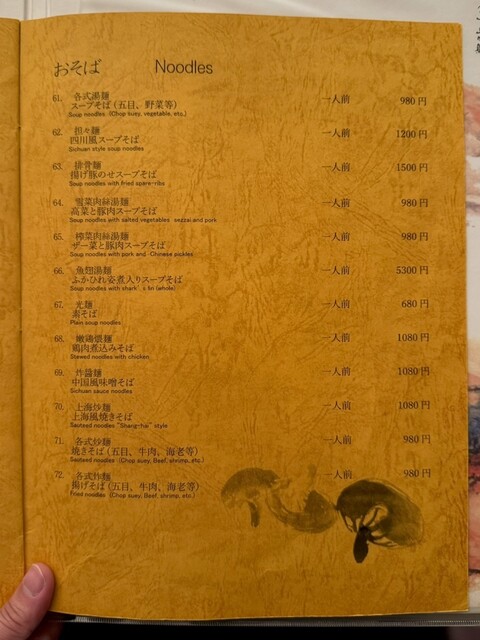 おそば Noodles
61. 各式湯麺 一人前 980円
スープそば(五目、野菜等)
Soup noodles (Chop suey, vegetable, etc.)
62. 担々麺 一人前 1200円
四川風スープそば
Sichuan style soup noodles
63. 排骨麺 一人前 1500円
揚げ豚のせスープそば
Soup noodles with fried spare-ribs
64. 雪菜肉絲湯麺 一人前 980円
高菜と豚肉スープそば
Soup noodles with salted vegetables sezzai and pork
65. 搾菜肉絲湯麺 一人前 980円
ザー菜と豚肉スープそば
Soup noodles with pork and Chinese pickles
66. 魚翅湯麺 一人前 5300円
ふかひれ姿煮入りスープそば
Soup noodles with shark's fin (whole)
67. 光麺 一人前 680円
素そば
Plain soup noodles
68. 嫩鶏煨麺 一人前 1080円
鶏肉煮込みそば
Stewed noodles with chicken
69. 炸醤麺 一人前 1080円
中国風味噌そば
Sichuan sauce noodles
70. 上海炒麺 一人前 1080円
上海風焼きそば
Sauteed noodles "Shang-hai" style
71. 各式炒麺 一人前 980円
焼きそば(五目、牛肉、海老等)
Sauteed noodles (Chop suey, Beef, shrimp, etc.)
72. 各式炸麺 一人前 980円
揚げそば(五目、牛肉、海老等)
Fried noodles (Chop suey, Beef, shrimp, etc.)